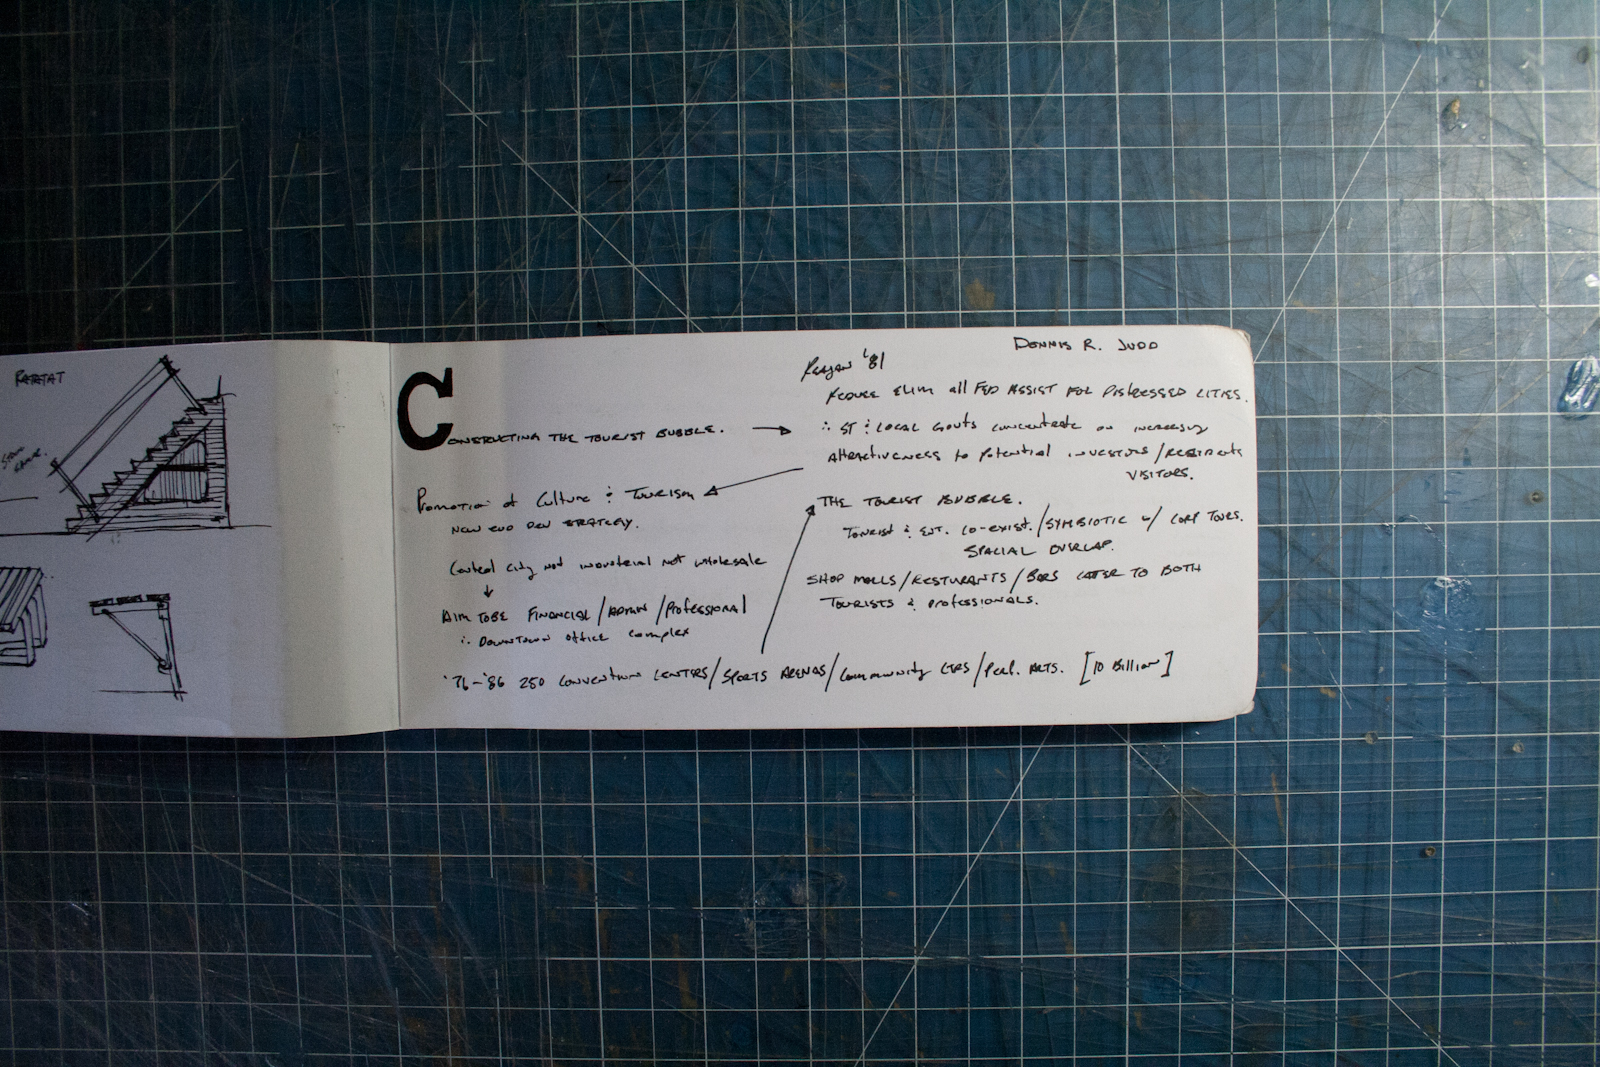 DENNIS R. JUDD
CONSTRUCTING THE TOURIST BUBBLE. →
REAGAN '81
REDUCE ELIM all FED ASSIST FOR DISTRESSED CITIES.
∴ ST & LOCAL GOVTS CONCENTRATE ON INCREASING
ATTRACTIVENESS to POTENTIAL INVESTORS/RESIDENTS
VISITORS.
Promotion of Culture & Tourism
NEW ECO DEV STRATEGY.
Central city not industrial not wholesale
↓
AIM TO BE FINANCIAL/ADMIN/PROFESSIONAL
∴ DOWNTOWN office complex
'76-'86 250 CONVENTION CENTERS/SPORTS ARENAS/Community CTRS/Perf. ARTS. [10 Billion]
THE TOURIST BUBBLE.
TOURIST & ENT. CO-EXIST./SYMBIOTIC w/ CORP TOURS.
SPACIAL OVERLAP.
SHOP MALLS/RESTURANTS/BARS CATER TO BOTH
TOURISTS & PROFESSIONALS.